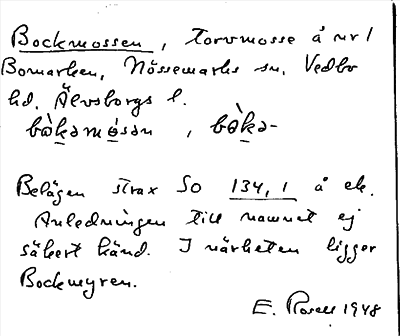 Bockmossen, Torvmosse å nr 1
Bomarken, Nössemarks sn. Vedbo
hd. Älvsborgs l.
bòkamåsan, bòka-
Belägen strax So 134,1 å ek.
Anledningen till namnet ej
säkert känd. I närheten ligger
Bockmyren.
E. Rosell 1948